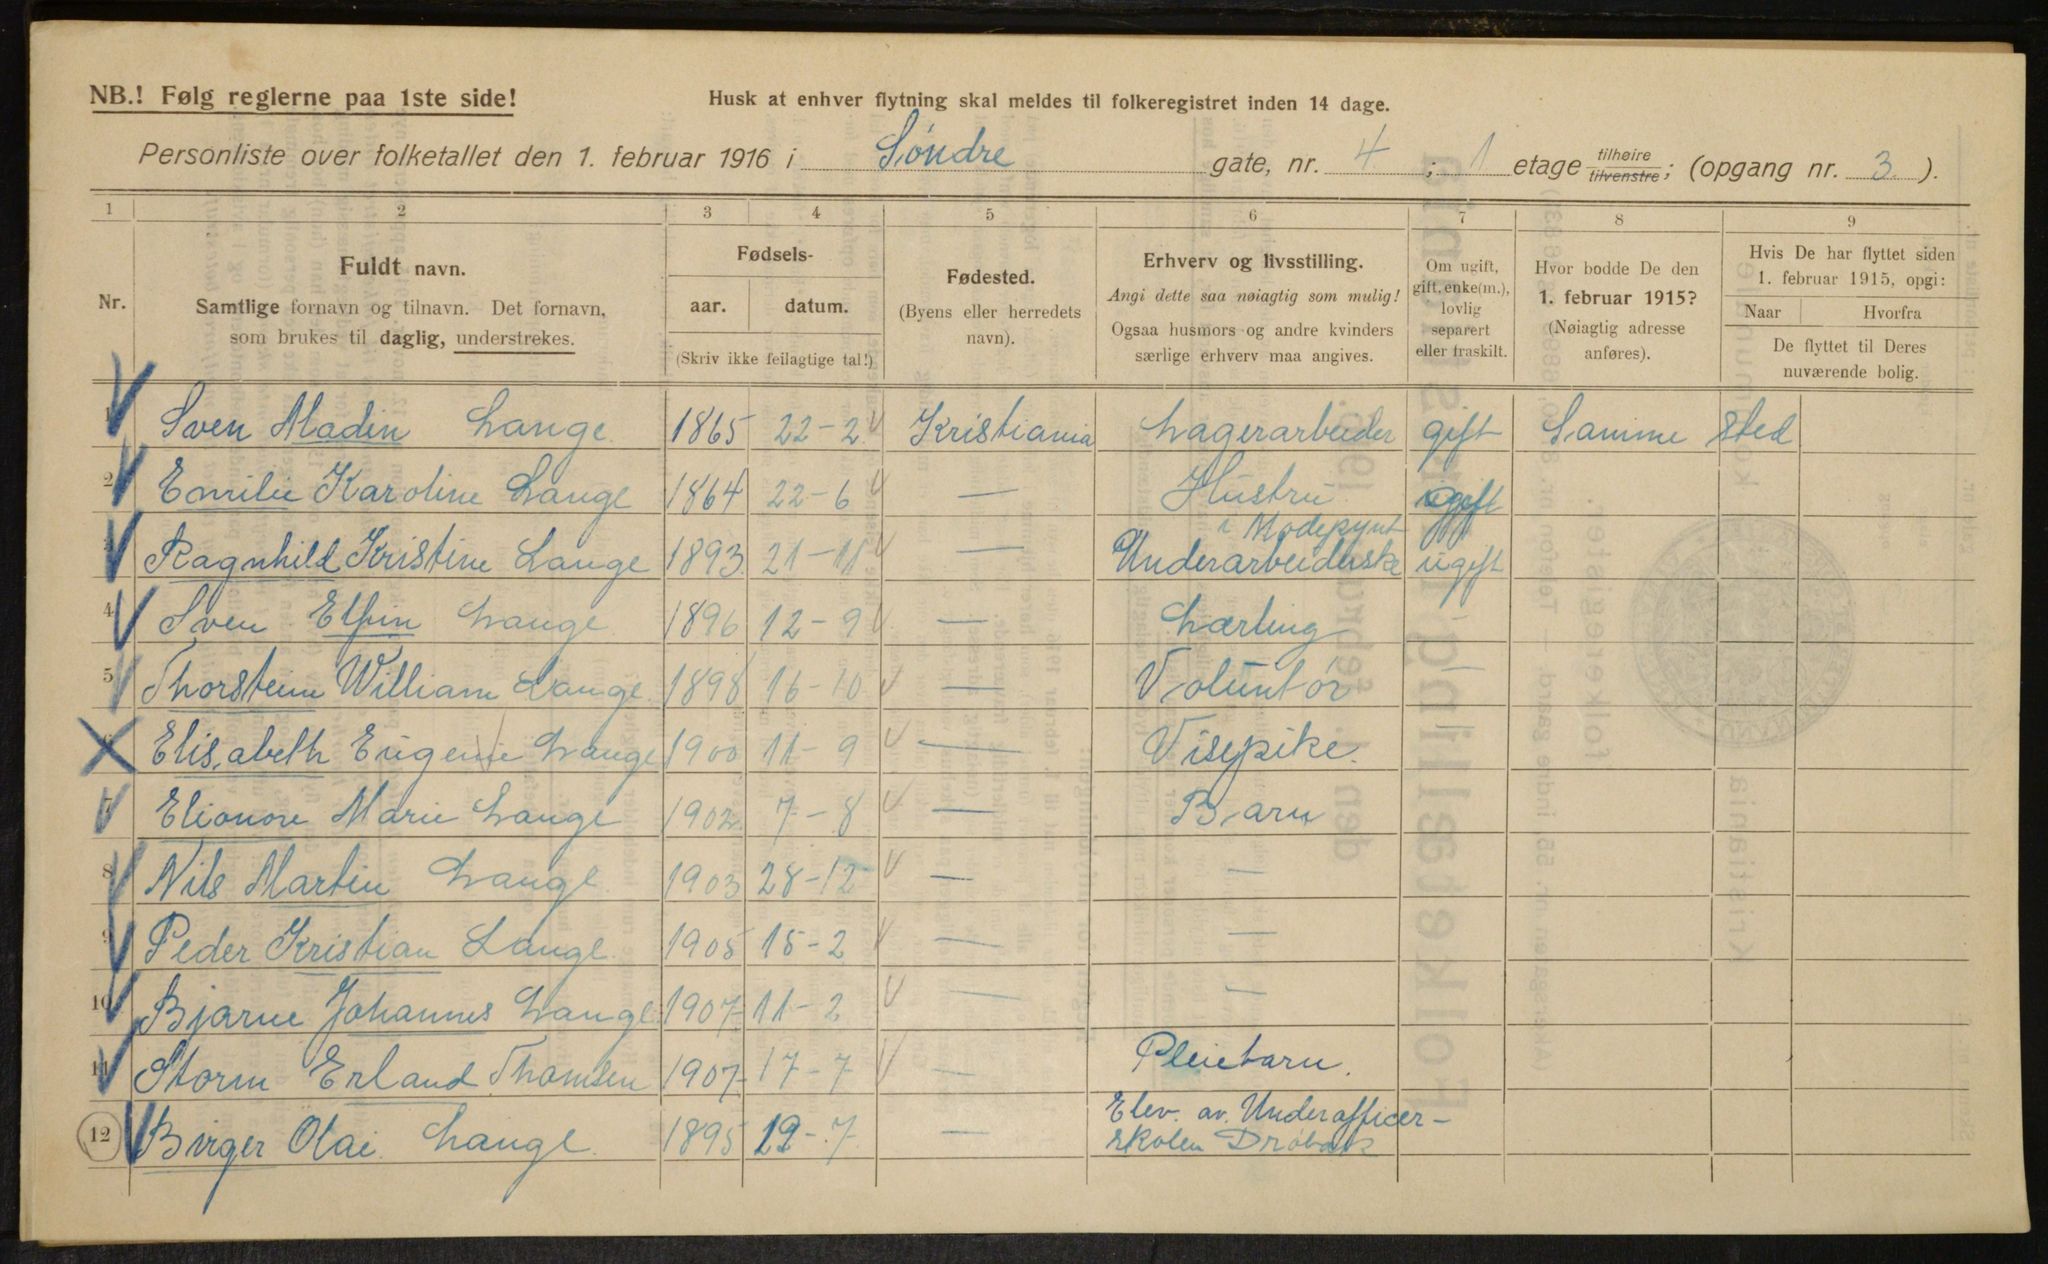 NB.! Følg reglerne paa 1ste side!
Husk at enhver flytning skal meldes til folkeregistret inden 14 dage.
Personliste over folketallet den 1. februar 1916 i Søndre gate, nr. 4 ; 1 etage tilhøire tilvenstre; (opgang nr. 3. ).
1 2 3 4 5 6 7 8 9
Nr.
Fuldt navn.
Samtlige fornavn og tilnavn. Det fornavn,
som brukes til daglig, understrekes.
Fødsels-
aar. datum.
(Skriv ikke feilagtige tal!)
Fødested.
(Byens eller herredets
navn).
Erhverv og livsstilling.
Angi dette saa nøiagtig som mulig!
Ogsaa husmors og andre kvinders
særlige erhverv maa angives.
Om ugift,
gift, enke(m.),
lovlig
separert
eller fraskilt.
Hvor bodde De den
1. februar 1915?
(Nøiagtig adresse
anføres).
Hvis De har flyttet siden
1. februar 1915, opgi:
Naar Hvorfra
De flyttet til Deres
nuværende bolig.
1 Sven Madin Lange 1865 22-2 Kristiania Lagerarbeider gift Samme sted
2 Emilie Karoline Lange 1864 22-6 — Hustru gift
i Modepynt
3 Ragnhild Kristine Lange 1893 21-11 — Underarbeiderske ugift
4 Sven Elfin Lange 1896 12-9 — Lærling —
5 Thorstein William Lange 1898 16-10 — Voluntør —
6 Elisabeth Eugenie Lange 1900 11-9 — Visepike.
7 Elionore Marie Lange 1902 7-8 — Barn
8 Nils Martin Lange 1903 28-12 — —
9 Peder Kristian Lange 1905 15-2 — —
10 Bjarne Johannes Lange 1907 11-2 — —
11 Storm Erland Thomsen 1907 17-7 — Pleiebarn.
12 Birger Olai Lange 1895 19-7 — Elev. av. Underofficer-
skolen Drøbak